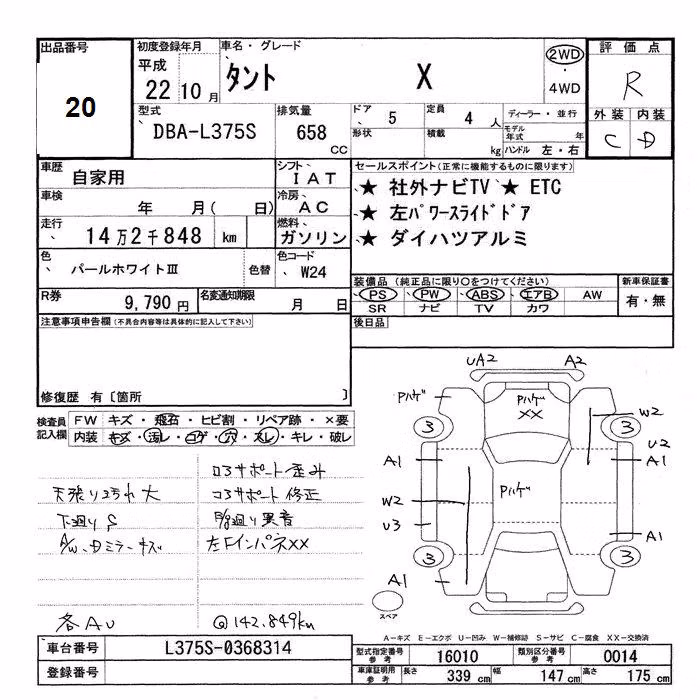 出品番号
20
初度登録年月
平成
22 10 月
車名・グレード
タント X
2WD
・
4WD
評価点
R
外装 内装
C D
型式
DBA-L375S
排気量
658
CC
ドア
5
形状
定員
4 人
積載
kg
ディーラー・並行
モデル年式 年
ハンドル 左・右
車歴
自家用
シフト
IAT
車検
年 月( 日)
冷房
AC
走行
14万2千848 km
燃料
ガソリン
色
パールホワイトⅢ
色替
色コード
W24
R券
9,790 円
名変通知期限
月 日
セールスポイント(正常に機能するものに限ります)
★ 社外ナビTV ★ ETC
★ 左パワースライドドア
★ ダイハツアルミ
装備品 (純正品に限り〇をつけてください)
PS PW ABS エアB AW
SR ナビ TV カワ
新車保証書
有・無
後日品
注意事項申告欄(不具合内容等は具体的に記入して下さい)
修復歴 有〔箇所 〕
検査員記入欄
FW キズ・飛石・ヒビ割・リペア跡・×要
内装 キズ・汚レ・コゲ・穴・スレ・キレ・破レ
ロアサポート歪み
天張り汚れ大
コアサポート修正
下廻りS
異音
A/W、Dミラーキズ
左FインパネXX
各AU
@142,849km
UA2
A2
Pハゲ
Pハゲ
XX
W2
3
3
U2
A1
A1
Pハゲ
W2
U3
A1
3
3
A1
スペア
A-キズ E-エクボ U-凹み W-補修跡 S-サビ C-腐食 XX-交換済
車台番号
L375S-0368314
登録番号
型式指定番号 参考
16010
類別区分番号 参考
0014
車庫証明用 参考
長さ 339 cm
幅 147 cm
高さ 175 cm